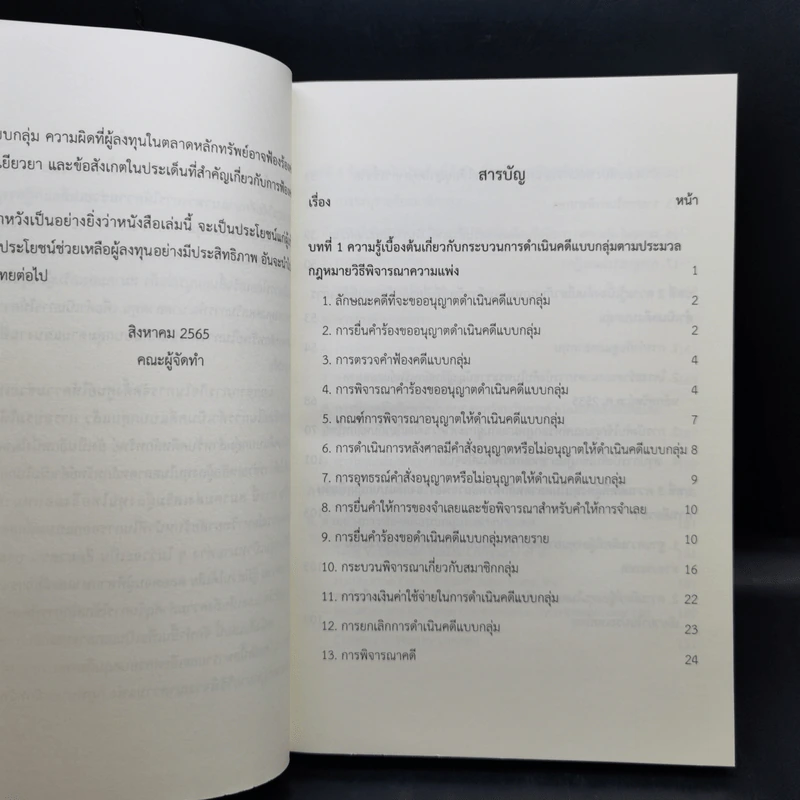 บบกลุ่ม ความผิดที่ผู้ลงทุนในตลาดหลักทรัพย์อาจฟ้องร้อง
เยียวยา และข้อสังเกตในประเด็นที่สำคัญเกี่ยวกับการฟ้อง
าหวังเป็นอย่างยิ่งว่าหนังสือเล่มนี้ จะเป็นประโยชน์แก่
ประโยชน์ช่วยเหลือผู้ลงทุนอย่างมีประสิทธิภาพ อันจะ
ทยต่อไป
สิงหาคม 2565
คณะผู้จัดทำ
สารบัญ
เรื่อง หน้า
บทที่ 1 ความรู้เบื้องต้นเกี่ยวกับกระบวนการดำเนินคดีแบบกลุ่มตามประมวล
กฎหมายวิธีพิจารณาความแพ่ง 1
1. ลักษณะคดีที่จะขออนุญาตดำเนินคดีแบบกลุ่ม 2
2. การยื่นคำร้องขออนุญาตดำเนินคดีแบบกลุ่ม 2
3. การตรวจคำฟ้องคดีแบบกลุ่ม 4
4. การพิจารณาคำร้องขออนุญาตดำเนินคดีแบบกลุ่ม 4
5. เกณฑ์การพิจารณาอนุญาตให้ดำเนินคดีแบบกลุ่ม 7
6. การดำเนินการหลังศาลมีคำสั่งอนุญาตหรือไม่อนุญาตให้ดำเนินคดีแบบกลุ่ม 8
7. การอุทธรณ์คำสั่งอนุญาตหรือไม่อนุญาตให้ดำเนินคดีแบบกลุ่ม 9
8. การยื่นคำให้การของจำเลยและข้อพิจารณาสำหรับคำให้การจำเลย 10
9. การยื่นคำร้องขอดำเนินคดีแบบกลุ่มหลายราย 10
10. กระบวนพิจารณาเกี่ยวกับสมาชิกกลุ่ม 16
11. การวางเงินค่าใช้จ่ายในการดำเนินคดีแบบกลุ่ม 22
12. การยกเลิกการดำเนินคดีแบบกลุ่ม 23
13. การพิจารณาคดี 24